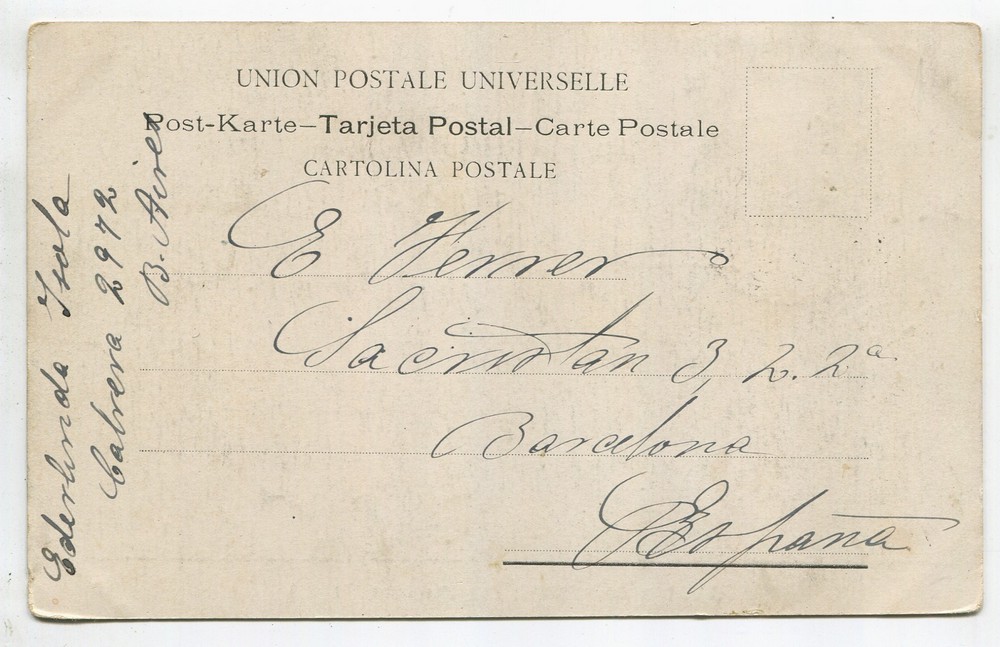 UNION POSTALE UNIVERSELLE
Post-Karte–Tarjeta Postal–Carte Postale
CARTOLINA POSTALE
E Ferrer
Sacristan 3, 2. 2ª
Barcelona
España
Ederlinda Isola
Cabrera 2972
B. Aires